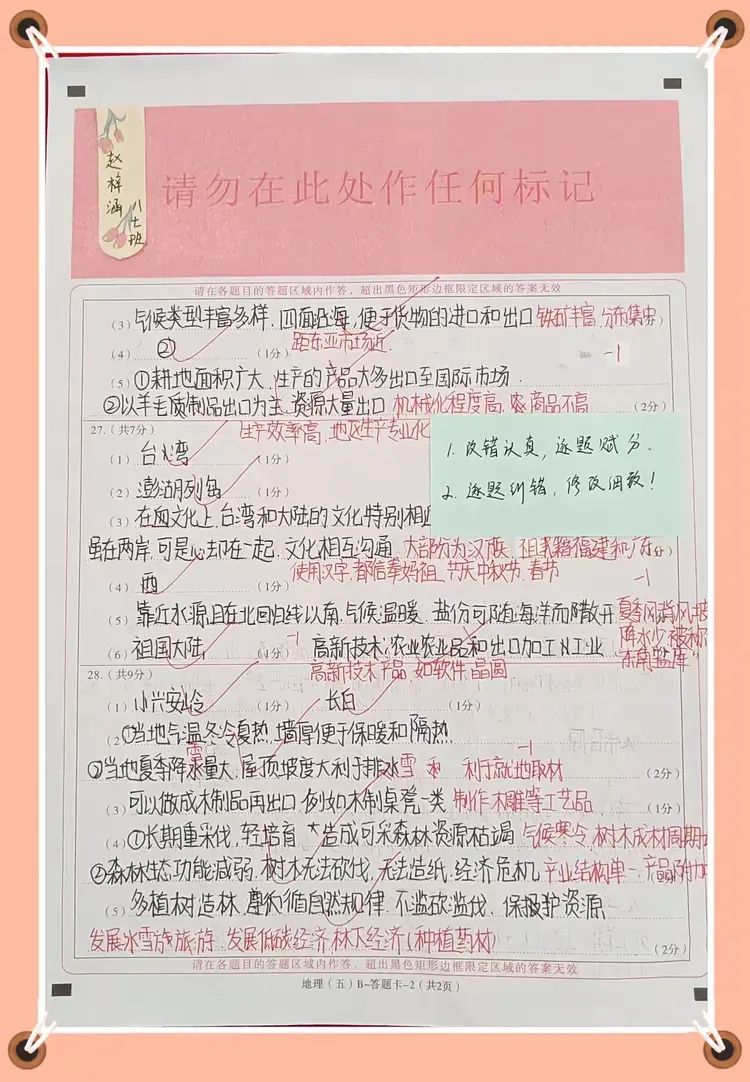 赵梓涵
八七班
请勿在此处作任何标记
请在各题目的答题区域内作答，超出黑色矩形边框限定区域的答案无效
(3) 气候类型丰富多样，四面沿海，便于货物的进口和出口 铁矿丰富，分布集中
距东亚市场近
(4) ② (1分) -1
(5) ①耕地面积广大，生产的产品大多出口至国际市场.
②以羊毛质制品出口为主，资源大量出口 机械化程度高 农 商品不高 (2分)
生产效率高，地区生产专业化
27.(共7分)
(1) 台湾 (1分)
1. 改错认真，逐题赋分.
2. 逐题纠错，修改细致！
(2) 澎湖列岛 (1分)
(3) 在文化上，台湾和大陆的文化特别相
虽在两岸，可是心却在一起，文化相互沟通，大部分为汉族，祖籍福建和广东 分)
使用汉字，都信奉妈祖，节庆中秋节、春节
(4) 西 (1分) -1
(5) 靠近水源且在北回归线以南，气候温暖，盐份可随海洋而散开 夏季风背风坡
降水少 被称
东南盐库"
(6) 祖国大陆 (1分) -1 高新技术：农业农业品和出口加工业 (1分)
高新技术产品，如软件，晶圆
28.(共9分)
(1) 小兴安岭 (1分) 长白 (1分)
(2) ①当地气温冬冷夏热，墙厚便于保暖和隔热
雪 -1
②当地夏季降水量大，屋顶坡度大利于排水雪 和 利于就地取材 (2分)
(3) 可以做成木制品再出口，例如木制桌凳一类 制作木雕等工艺品 (1分)
(4) ①长期重采伐，轻培育，造成可采森林资源枯竭 气候寒冷，树木成材周期
②森林生态功能减弱，树木无法砍伐，无法造纸，经济危机 产业结构单一，产品附加
(5) 多植树造林，遵循自然规律，不滥砍滥伐，保护资源
发展冰雪旅游，发展低碳经济 林下经济(种植药材) (2分)
请在各题目的答题区域内作答，超出黑色矩形边框限定区域的答案无效
地理（五）B-答题卡-2（共2页）